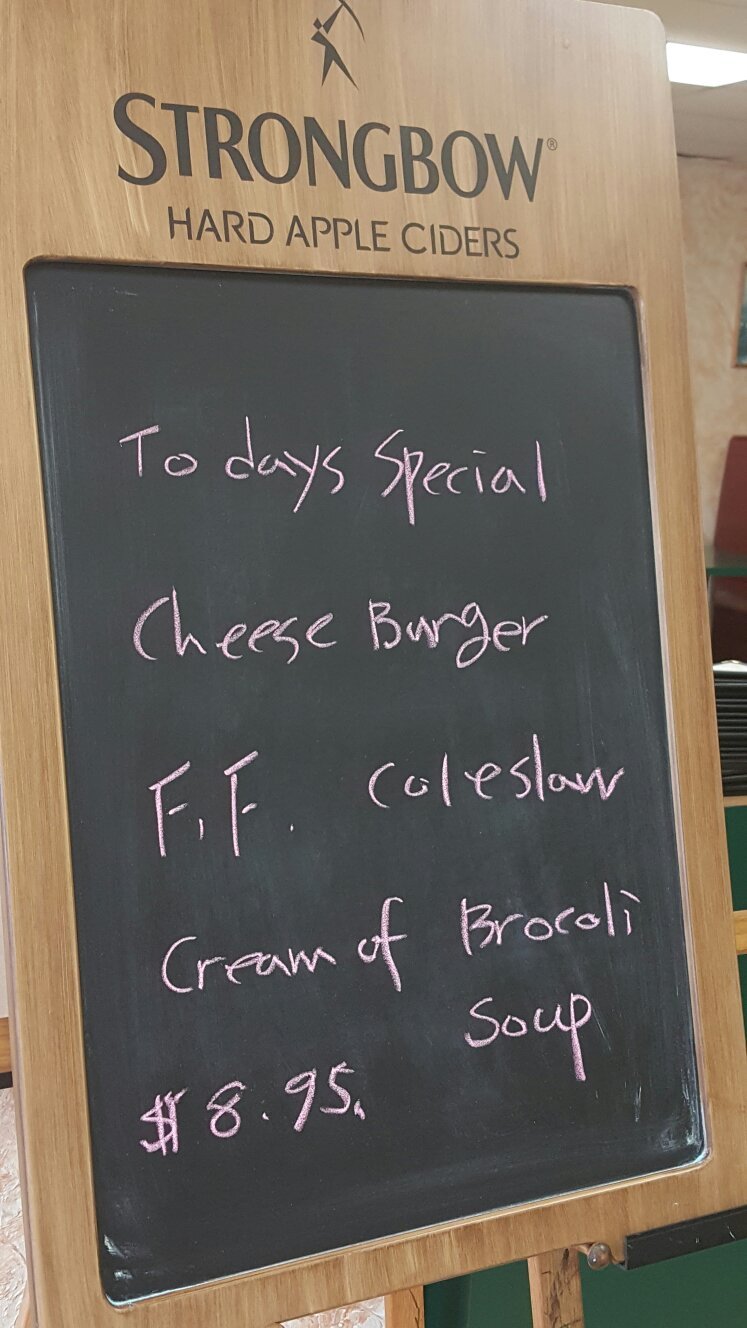 STRONGBOW®
HARD APPLE CIDERS
To days Special
Cheese Burger
F.F. Coleslaw
Cream of Brocoli
Soup
$8.95.